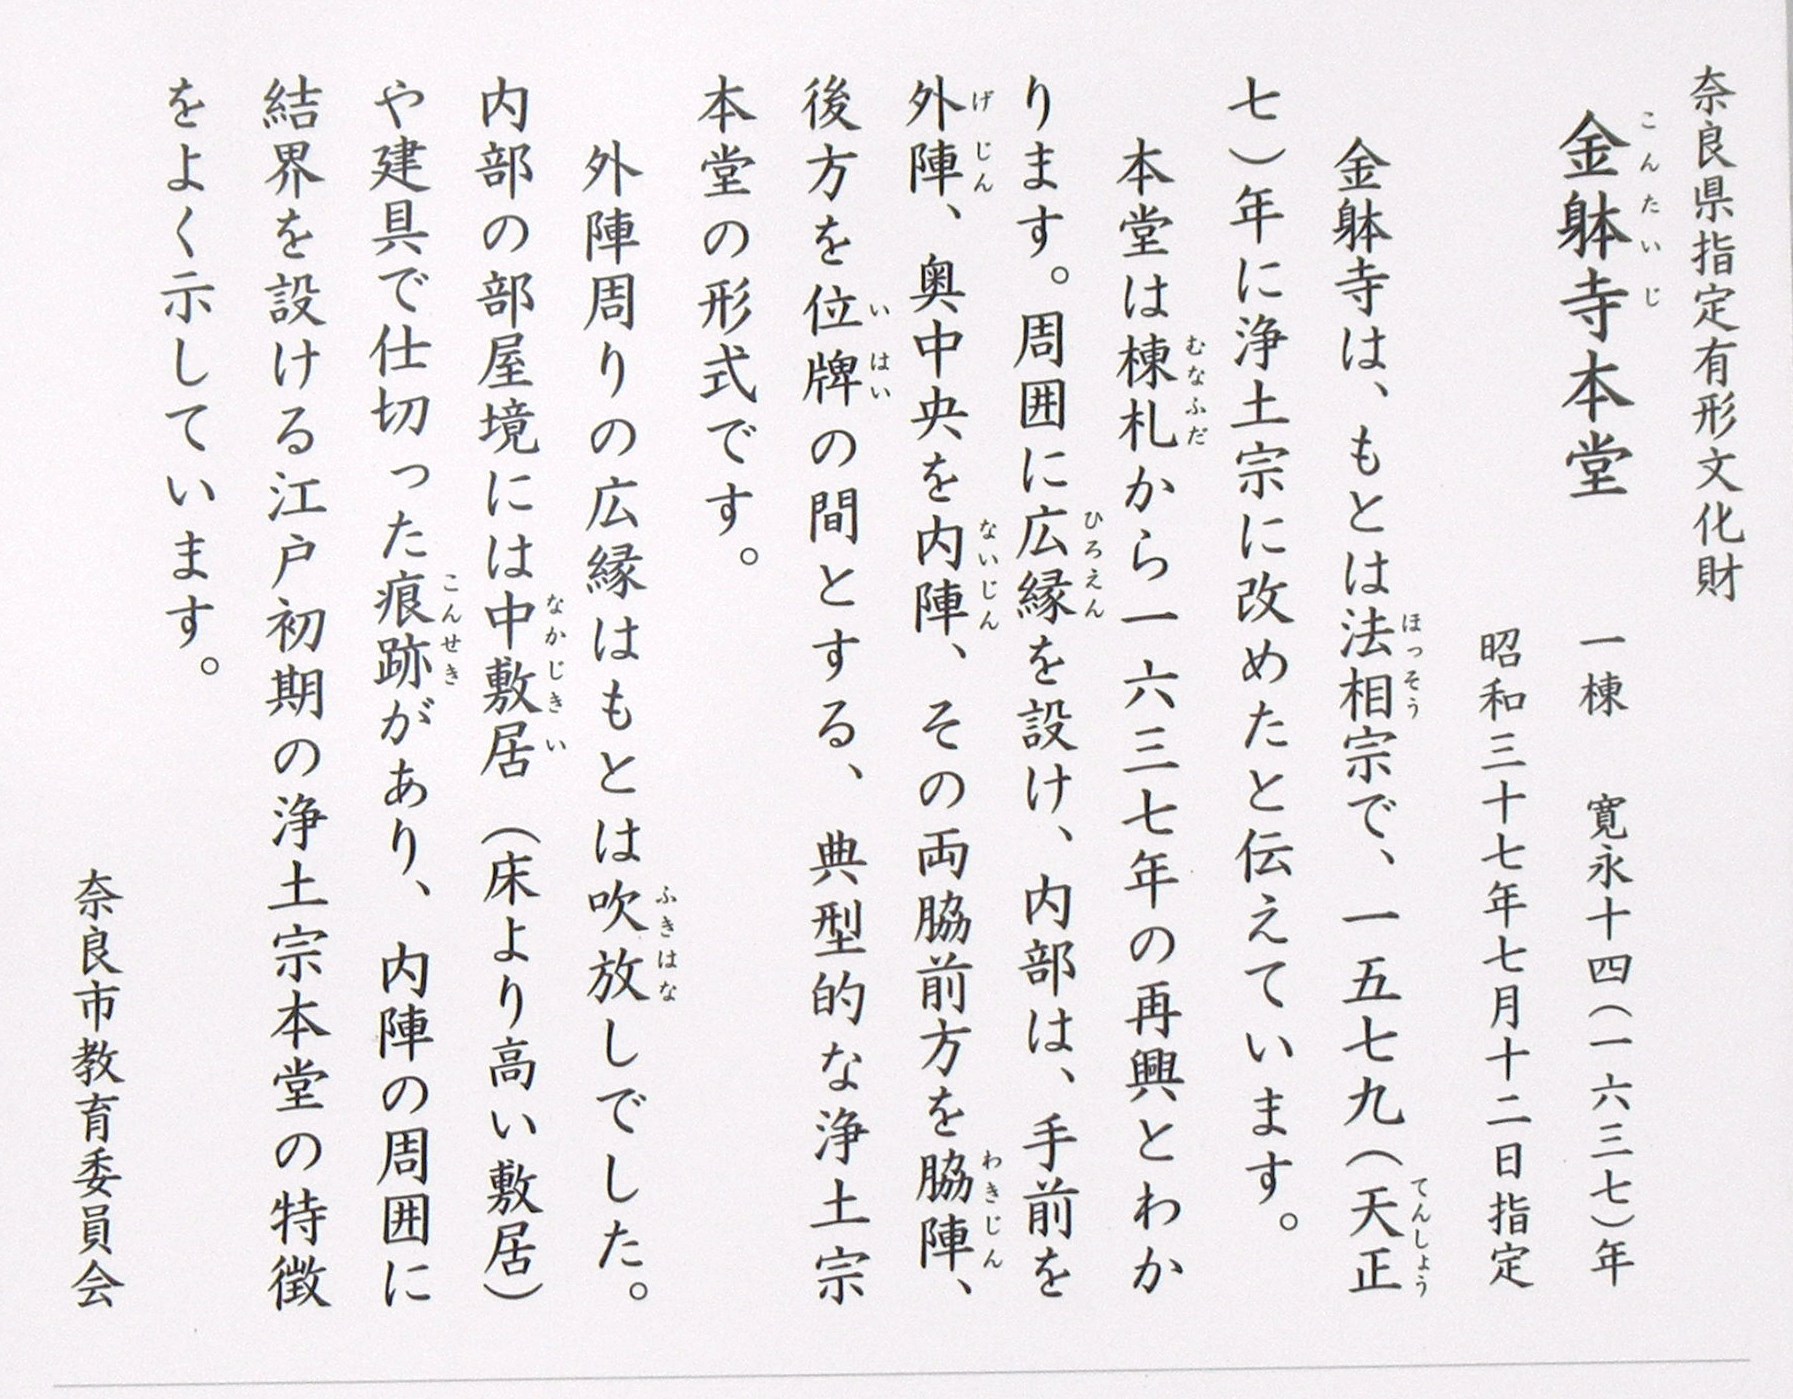 奈良県指定有形文化財
金躰寺本堂　一棟　寛永十四（一六三七）年
こんたいじ
昭和三十七年七月十二日指定
金躰寺は、もとは法相宗で、一五七九（天正
ほっそう　てんしょう
七）年に浄土宗に改めたと伝えています。
本堂は棟札から一六三七年の再興とわか
むなふだ
ります。周囲に広縁を設け、内部は、手前を
ひろえん
外陣、奥中央を内陣、その両脇前方を脇陣、
げじん　ないじん　わきじん
後方を位牌の間とする、典型的な浄土宗
いはい
本堂の形式です。
外陣周りの広縁はもとは吹放しでした。
ふきはな
内部の部屋境には中敷居（床より高い敷居）
なかじきい
や建具で仕切った痕跡があり、内陣の周囲に
こんせき
結界を設ける江戸初期の浄土宗本堂の特徴
をよく示しています。
奈良市教育委員会